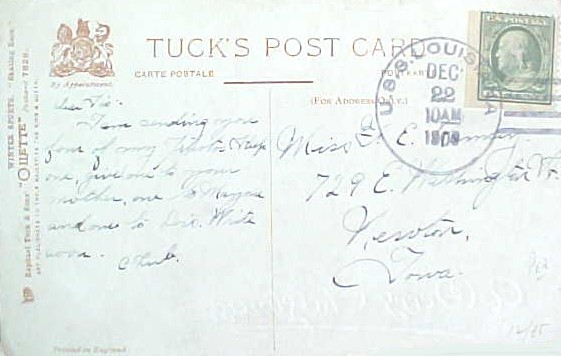 TUCK'S POST CARD
CARTE POSTALE
POSTKARTE
(FOR ADDRESS ONLY.)
By Appointment.
WINTER SPORTS. "Skating Race."
"OILETTE" Postcard 7829.
Raphael Tuck & Sons'
ART PUBLISHERS TO THEIR MAJESTIES THE KING & QUEEN.
U.S. POSTAGE
U.S.S. LOUISIANA
DEC
22
10AM
1908
Dear Vic-
I am sending you
four of my photos. Keep
one, give one to your
mother, one to
and one to Dir. Write
soon.
Chub.
Miss E.
729 E. Washington St.
Newton,
Iowa.
12/85
Printed in England.